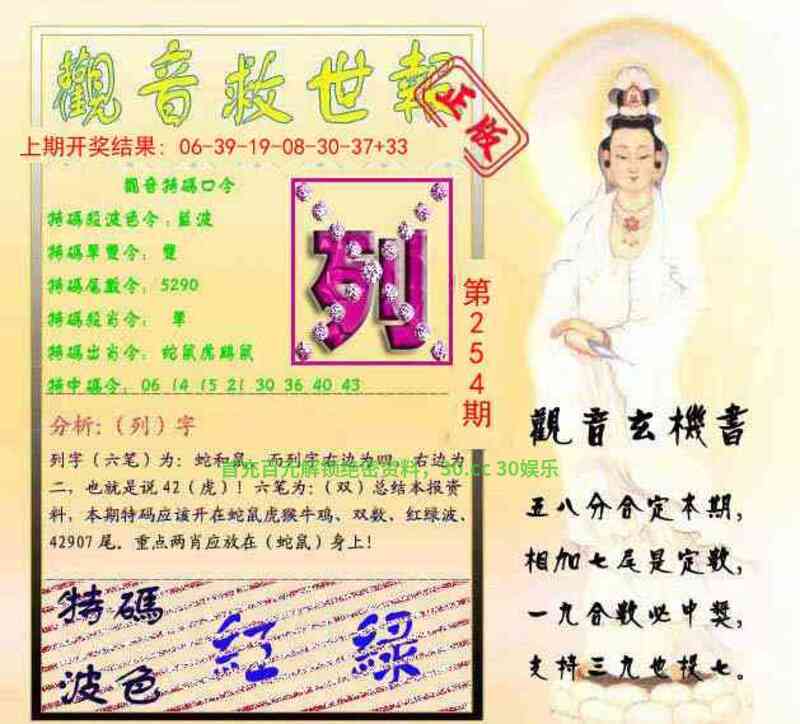 觀音救世報
正版
上期开奖结果：06-39-19-08-30-37+33
觀音特碼口令
特碼殺波色令：藍波
特碼單雙令：雙
特碼尾數令：5290
特碼殺肖令：單
特碼出肖令：蛇鼠虎鷄鼠
特中碼令：06 14 15 21 30 36 40 43
列
第254期
分析:（列）字
列字（六笔）为：蛇和鼠，而列字左边为四，右边为
二，也就是说42（虎）！六笔为：（双）总结本报资
料，本期特码应该开在蛇鼠虎猴牛鸡、双数、红绿波、
42907尾．重点两肖应放在（蛇鼠）身上！
首充百元解锁绝密资料，30.cc 30娱乐
特碼
波色
紅 綠
觀音玄機書
五八分合定本期，
相加七尾是定数，
一九合数必中獎，
支持三九也提七。